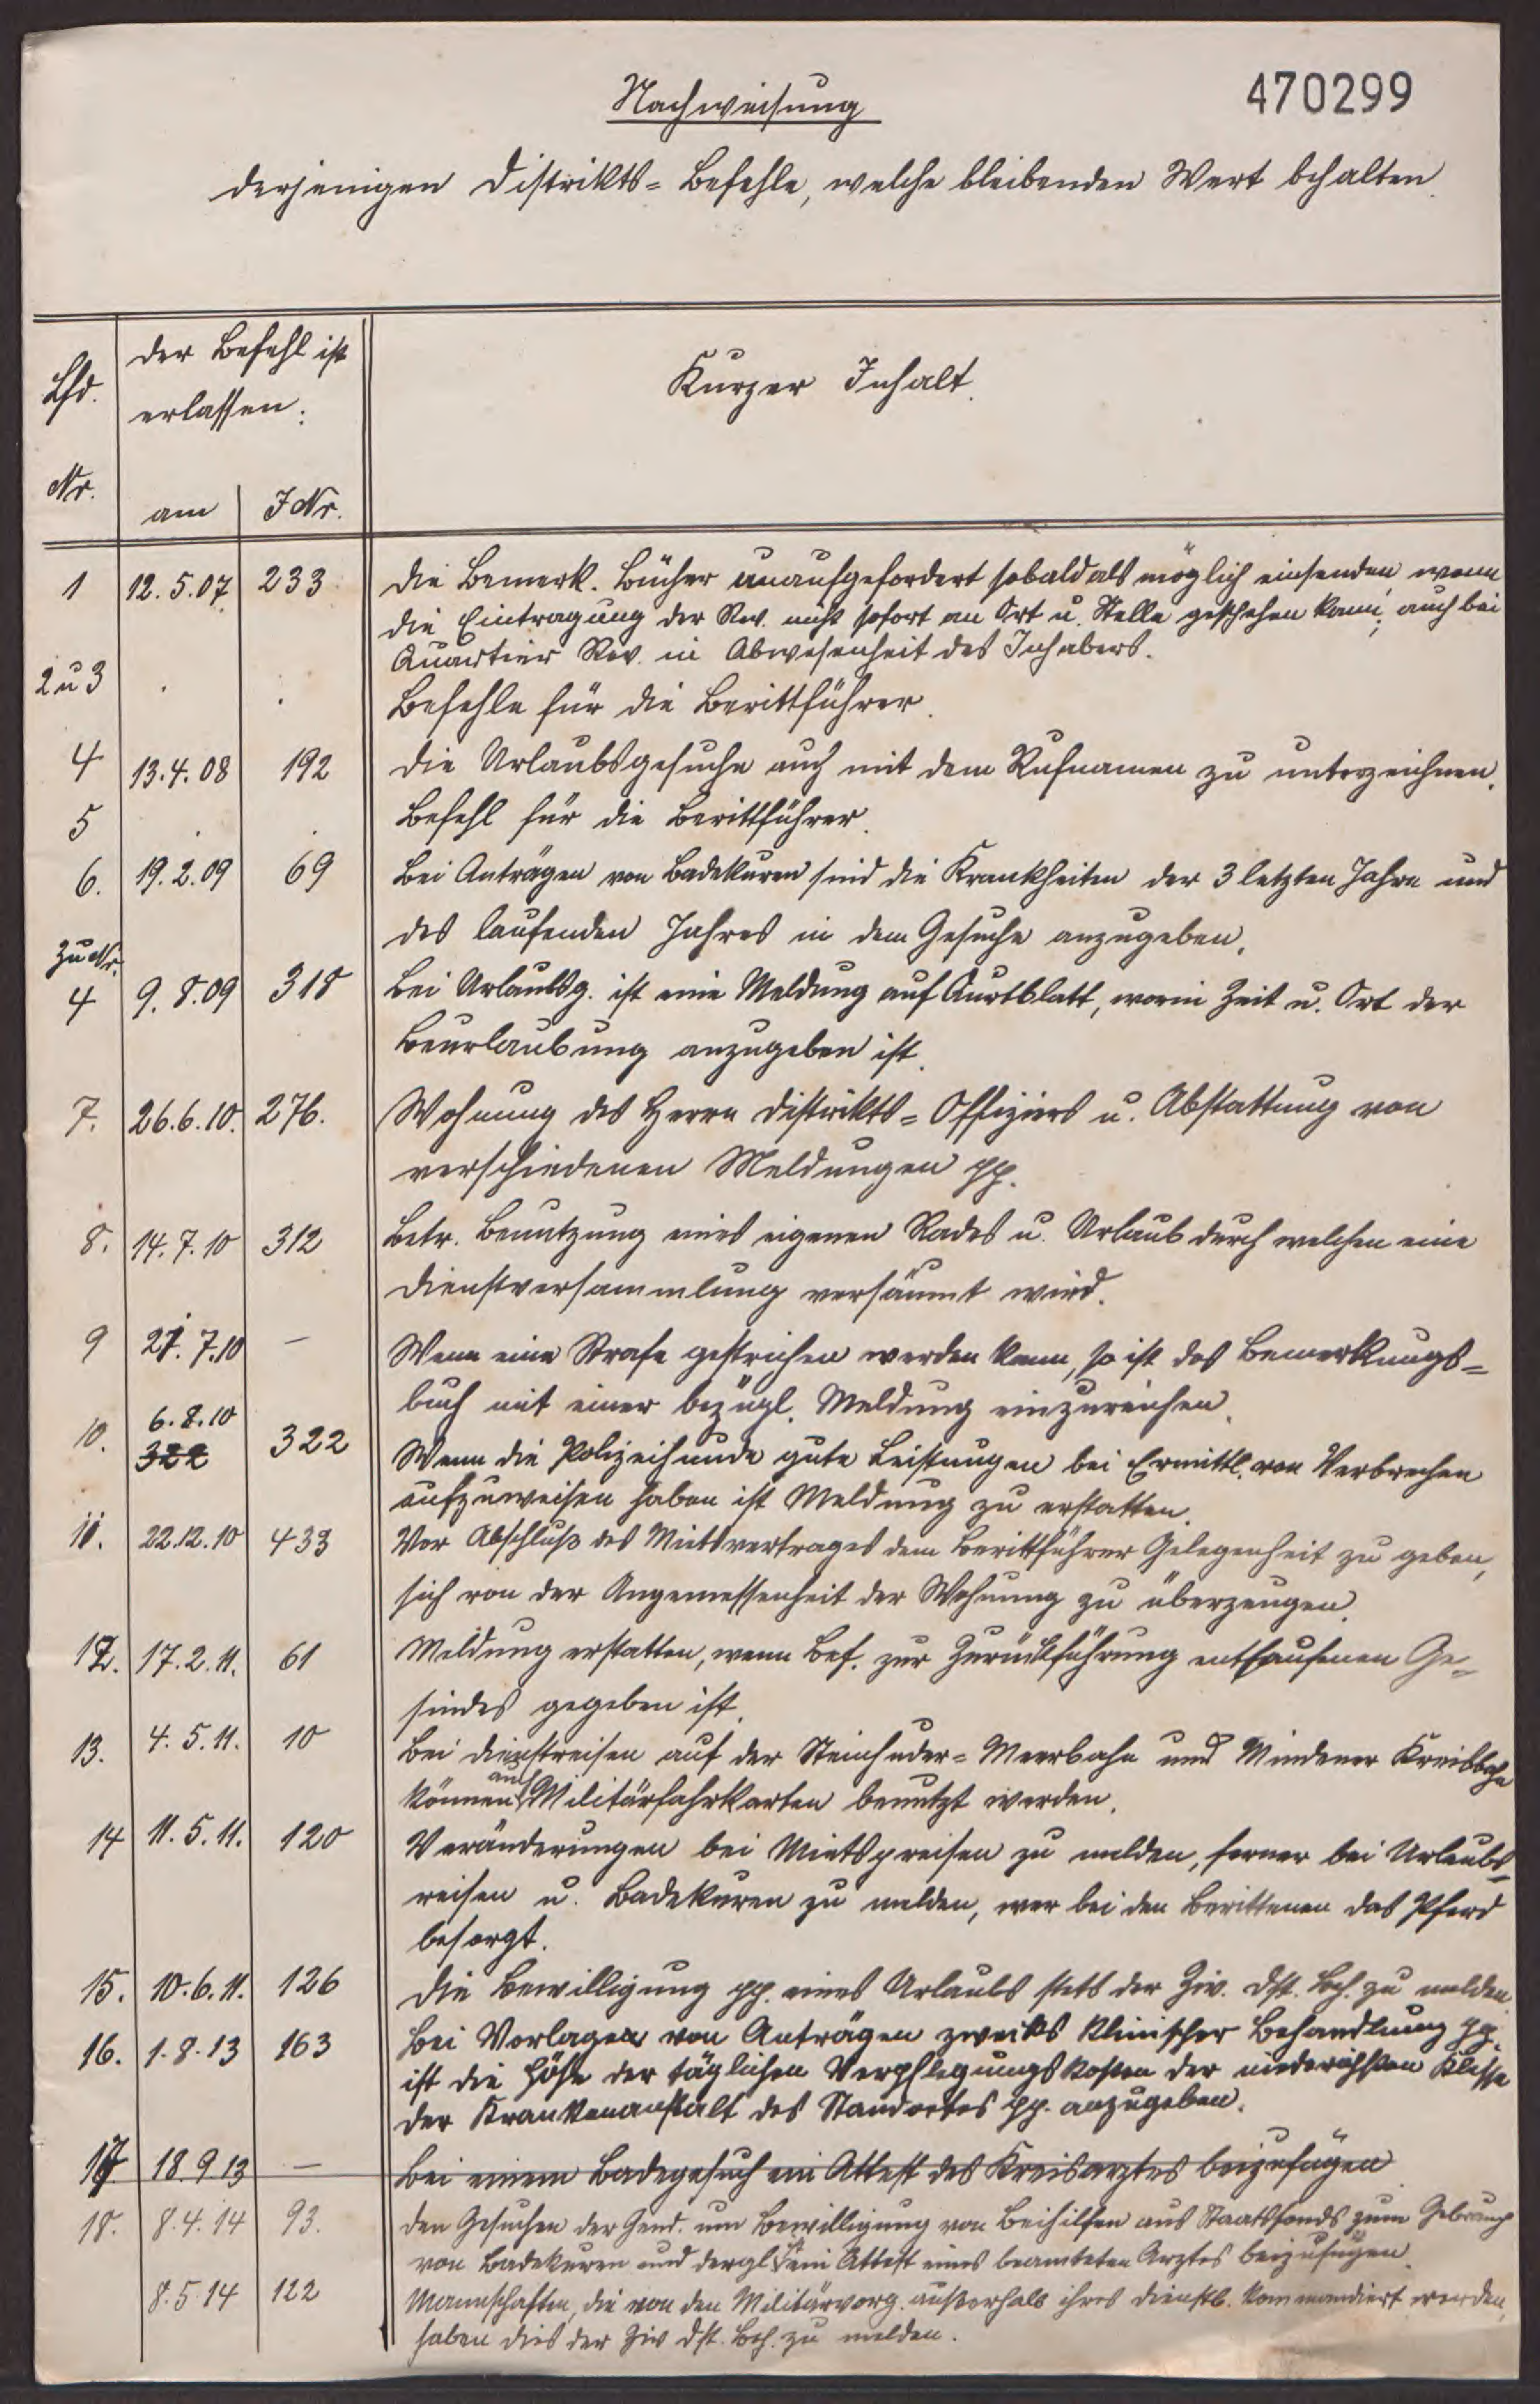 470299
Nachweisung
derjenigen Distrikts-Befehle, welche bleibenden Wert behalten.
Lfd. Nr.
der Befehl ist
erlassen:
am
J Nr.
Kurzer Inhalt.
1 12.5.07. 233 Die Bemerk. Bücher unaufgefordert sobald als möglich einsenden, wenn
die Eintragung der Rev. nicht sofort an Ort u. Stelle geschehen kann, auch bei
Quartier Rev. in Abwesenheit des Inhabers.
2 u 3 . . Befehle für die Berittführer.
4 13.4.08 192 Die Urlaubsgesuche auch mit dem Rufnamen zu unterzeichnen.
5 . . Befehl für die Berittführer.
6. 19.2.09 69 Bei Anträgen von Badekuren sind die Krankheiten der 3 letzten Jahre und
des laufenden Jahres in dem Gesuche anzugeben.
Zu Nr.
4 9.8.09 318 Bei Urlaubsg. ist eine Meldung auf Quartblatt, worin Zeit u. Ort der
Beurlaubung anzugeben ist.
7. 26.6.10. 276. Wohnung des Herrn Distrikts-Offiziers u. Abstattung von
verschiedenen Meldungen pp.
8. 14.7.10 312 Betr. Benutzung eines eigenen Rades u. Urlaub durch welchen eine
Dienstversammlung versäumt wird.
9 21.7.10 — Wenn eine Strafe gestrichen werden kann, so ist das Bemerkungs-
buch mit einer bezügl. Meldung einzureichen.
10. 6.8.10 322 322 Wenn die Polizeihunde gute Leistungen bei Ermittl. von Verbrechen
aufzuweisen haben ist Meldung zu erstatten.
11. 22.12.10 433 Vor Abschluß des Mietsvertrages dem Berittführer Gelegenheit zu geben,
sich von der Angemessenheit der Wohnung zu überzeugen.
12. 17.2.11. 61 Meldung erstatten, wenn Bef. zur Zurückführung entlaufenen Ge-
sindes gegeben ist.
13. 4.5.11. 10 Bei Dienstreisen auf der Steinhuder-Meerbahn und Mindener Kreisbahn
können auch Militärfahrkarten benutzt werden.
14 11.5.11. 120 Veränderungen bei Mietspreisen zu melden, ferner bei Urlaubs-
reisen u. Badekuren zu melden, wer bei den Berittenen das Pferd
besorgt.
15. 10.6.11. 126 Die Bewilligung pp. eines Urlaubs stets der Ziv. Dst. Beh. zu melden.
16. 1.8.13 163 Bei Vorlagen von Anträgen zwecks klinischer Behandlung pp.
ist die Höhe der täglichen Verpflegungskosten der niedrigsten Klasse
der Krankenanstalt des Standortes pp. anzugeben.
17 18.9.13 — Bei einem Badegesuch ein Attest des Kreisarztes beizufügen
18. 8.4.14 93. Den Gesuchen der Gend. um Bewilligung von Beihilfen aus Staatsfonds zum Gebrauch
von Badekuren und dergl. ein Attest eines beamteten Arztes beizufügen.
8.5.14 122 Mannschaften, die von den Militärvorg. außerhalb ihres Dienstb. kommandiert werden,
haben dies der Ziv Dst. Beh. zu melden.